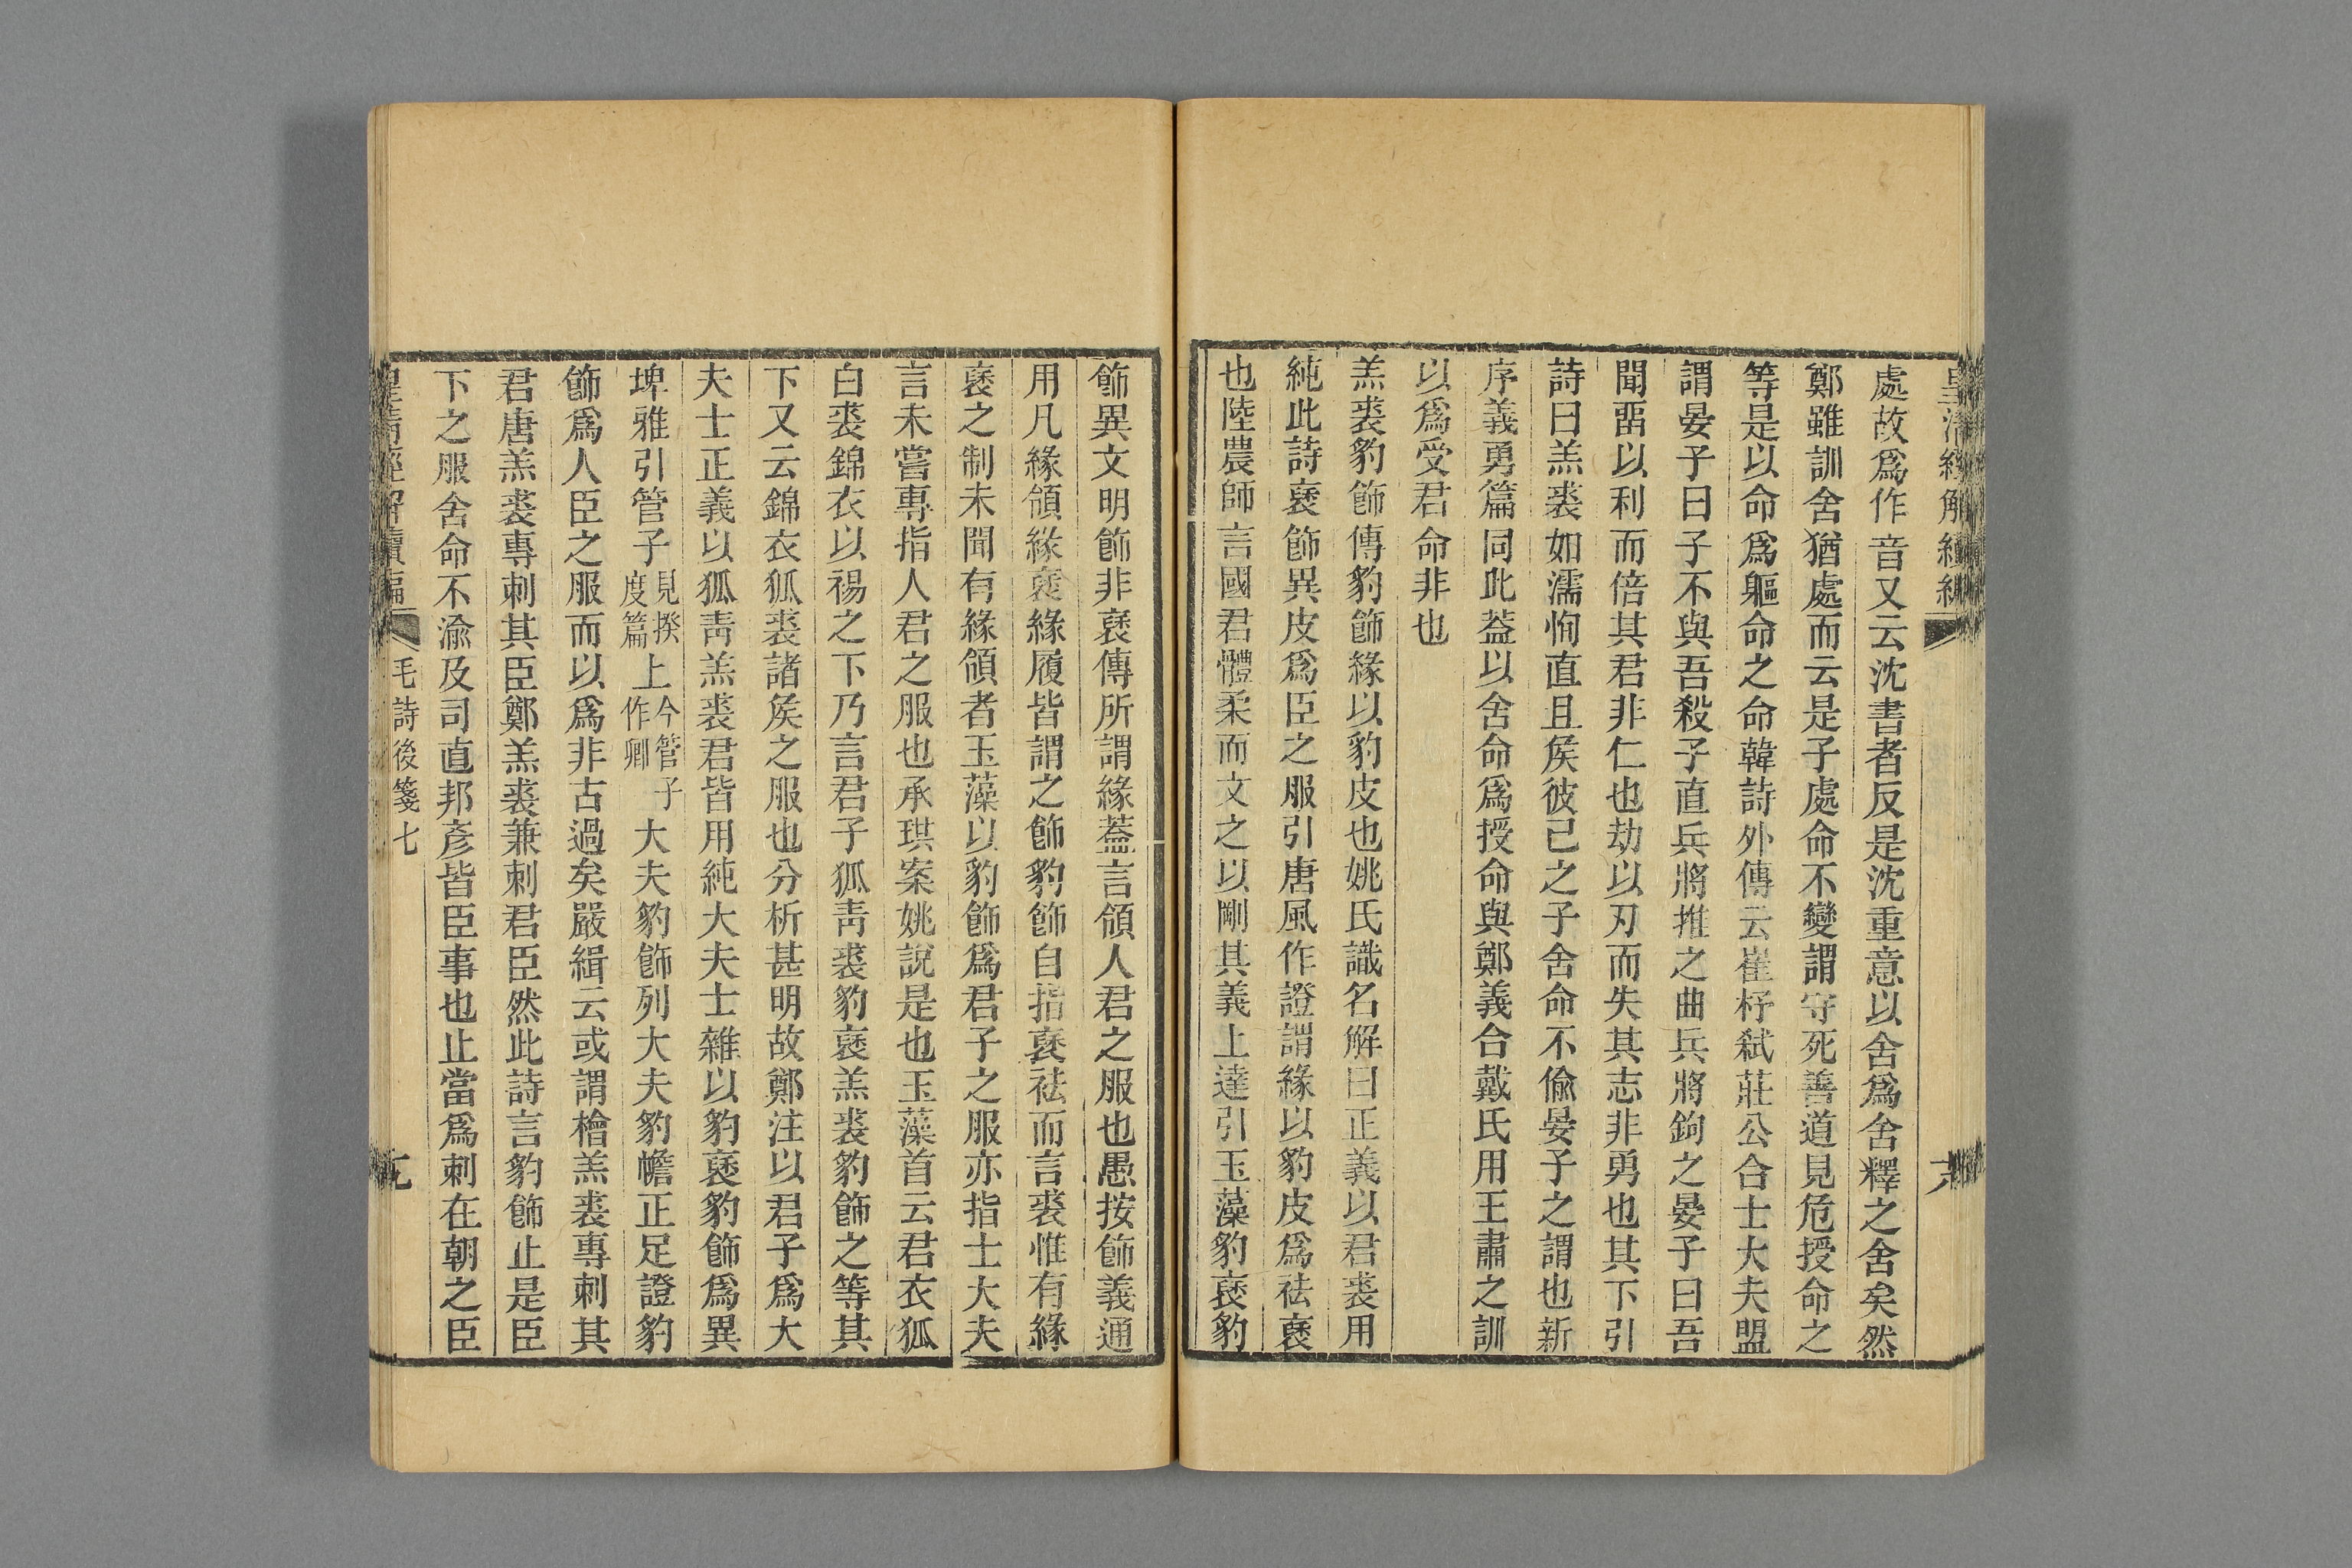 處故爲作音又云沈書者反是沈重意以舍爲舍釋之舍矣然
鄭雖訓舍猶處而云是子處命不變謂守死善道見危授命之
等是以命爲軀命之命韓詩外傳云崔杼弑莊公合士大夫盟
謂晏子曰子不與吾殺子直兵將推之曲兵將鉤之晏子曰吾
聞畱以利而倍其君非仁也劫以刃而失其志非勇也其下引
詩曰羔裘如濡恂直且矦彼己之子舍命不偷晏子之謂也新
序義勇篇同此葢以舍命爲授命與鄭義合戴氏用王肅之訓
以爲受君命非也
羔裘豹飾傳豹飾緣以豹皮也姚氏識名解曰正義以君裘用
純此詩襃飾異皮爲臣之服引唐風作證謂緣以豹皮爲祛襃
也陸農師言國君體柔而文之以剛其義上達引玉藻豹襃豹
飾異文明飾非襃傳所謂緣葢言領人君之服也愚按飾義通
用凡緣領緣襃緣履皆謂之飾豹飾自指襃祛而言裘惟有緣
襃之制未聞有緣領者玉藻以豹飾爲君子之服亦指士大夫
言未嘗專指人君之服也承珙案姚說是也玉藻首云君衣狐
白裘錦衣以裼之下乃言君子狐靑裘豹襃羔裘豹飾之等其
下又云錦衣狐裘諸矦之服也分析甚明故鄭注以君子爲大
夫士正義以狐靑羔裘君皆用純大夫士雜以豹襃豹飾爲異
埤雅引管子見揆度篇上今管子作卿大夫豹飾列大夫豹幨正足證豹
飾爲人臣之服而以爲非古過矣嚴緝云或謂檜羔裘專刺其
君唐羔裘專刺其臣鄭羔裘兼刺君臣然此詩言豹飾止是臣
下之服舍命不渝及司直邦彥皆臣事也止當爲刺在朝之臣
毛詩後箋七